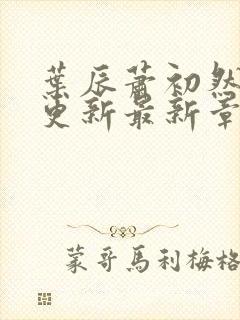 葉辰蕭初然
更新最新章
蒙哥馬利梅格